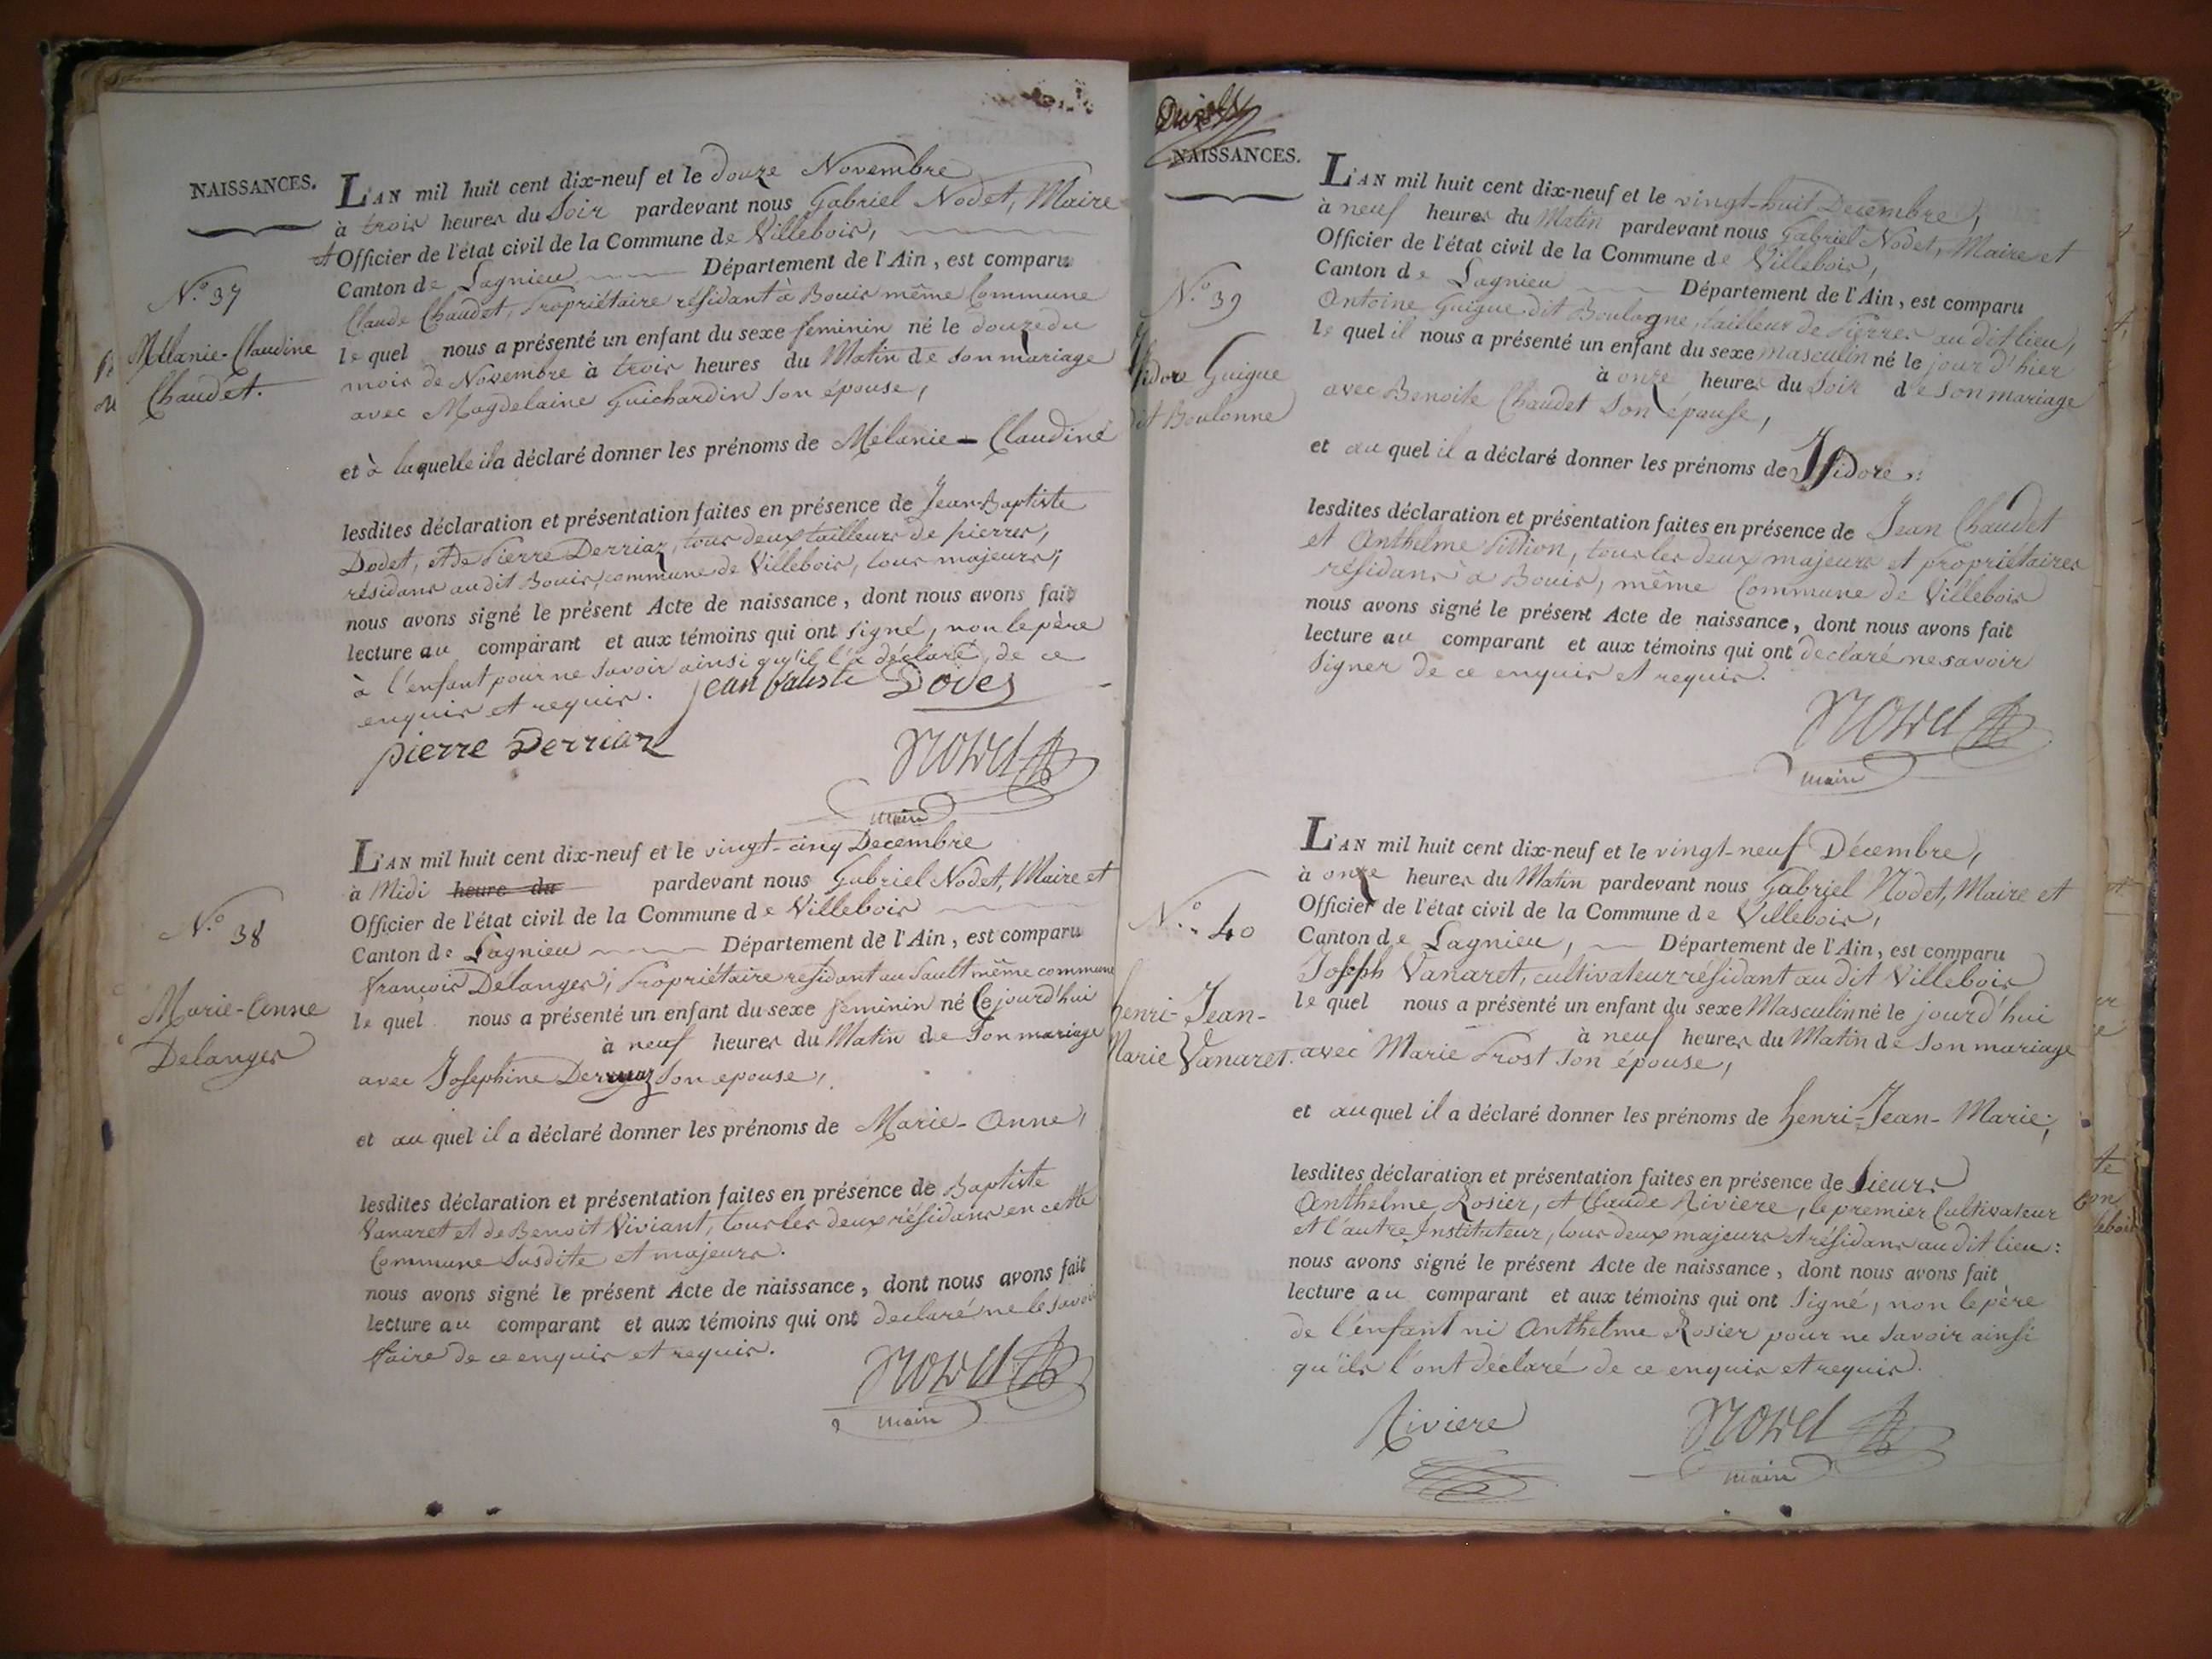 NAISSANCES.
L'AN mil huit cent dix-neuf et le douze Novembre
à trois heures du Soir pardevant nous Gabriel Nodet, Maire
et Officier de l'état civil de la Commune de Villebois,
Canton de Lagnieu Département de l'Ain, est comparu
N.o 37
Claude Chaudet, Propriétaire résidant à Bouis même Commune
Mélanie-Claudine
Chaudet.
le quel nous a présenté un enfant du sexe feminin né le douze du
mois de Novembre à trois heures du Matin de son mariage
avec Magdelaine Guichardin son épouse,
et à laquelle il a déclaré donner les prénoms de Mélanie-Claudine
lesdites déclaration et présentation faites en présence de Jean-Baptiste
Dodet, et de Pierre Derriaz, tous deux tailleurs de pierres,
résidans au dit Bouis, commune de Villebois, tous majeurs;
nous avons signé le présent Acte de naissance, dont nous avons fait
lecture au comparant et aux témoins qui ont signé, non le père
à l'enfant pour ne savoir ainsi qu'il l'a déclaré, de ce
enquis et requis. jean batiste Dodet
pierre Derriaz Nodet
maire
L'AN mil huit cent dix-neuf et le vingt-cinq Decembre
à Midi heure du pardevant nous Gabriel Nodet, Maire et
Officier de l'état civil de la Commune de Villebois
Canton de Lagnieu Département de l'Ain, est comparu
N.o 38
Marie-Anne
Delanges
François Delanges, Propriétaire residant au Sault même commune
le quel nous a présenté un enfant du sexe feminin né le jourd'hui
à neuf heures du Matin de son mariage
avec Josephine Derryaz son epouse,
et au quel il a déclaré donner les prénoms de Marie-Anne,
lesdites déclaration et présentation faites en présence de Baptiste
Vanaret et de Benoit Viviant, tous les deux résidans en cette
Commune Susdite et majeurs.
nous avons signé le présent Acte de naissance, dont nous avons fait
lecture au comparant et aux témoins qui ont declaré ne le savoir
faire de ce enquis et requis.
Nodet
maire
NAISSANCES.
L'AN mil huit cent dix-neuf et le vingt-huit Decembre,
à neuf heures du Matin pardevant nous Gabriel Nodet, Maire et
Officier de l'état civil de la Commune de Villebois,
Canton de Lagnieu Département de l'Ain, est comparu
N.o 39
Isidore Guigue
dit Boulonne
Antoine Guigue dit Boulogne, tailleur de Pierres au dit lieu,
le quel il nous a présenté un enfant du sexe masculin né le jour d'hier
à onze heures du Soir de son mariage
avec Benoite Chaudet son épouse,
et au quel il a déclaré donner les prénoms de Isidore.
lesdites déclaration et présentation faites en présence de Jean Chaudet
et Anthelme, tous les deux majeurs et propriétaires
résidans à Bouis, même Commune de Villebois
nous avons signé le présent Acte de naissance, dont nous avons fait
lecture au comparant et aux témoins qui ont declaré ne savoir
signer de ce enquis et requis.
Nodet
maire
L'AN mil huit cent dix-neuf et le vingt-neuf Décembre,
à onze heures du Matin pardevant nous Gabriel Nodet, Maire et
Officier de l'état civil de la Commune de Villebois,
Canton de Lagnieu, Département de l'Ain, est comparu
N.o 40
henri-Jean-
Marie Vanaret.
Joseph Vanaret, cultivateur résidant au dit Villebois
le quel nous a présenté un enfant du sexe Masculin né le jourd'hui
à neuf heures du Matin de son mariage
avec Marie Prost son épouse,
et au quel il a déclaré donner les prénoms de henri-Jean-Marie;
lesdites déclaration et présentation faites en présence de Sieurs
Anthelme Rosier, et Claude Riviere, le premier Cultivateur
et l'autre Instituteur, tous deux majeurs et résidans au dit lieu:
nous avons signé le présent Acte de naissance, dont nous avons fait
lecture au comparant et aux témoins qui ont signé, non le père
de l'enfant ni Anthelme Rosier pour ne savoir ainsi
qu'ils l'ont déclaré de ce enquis et requis.
Riviere Nodet
maire